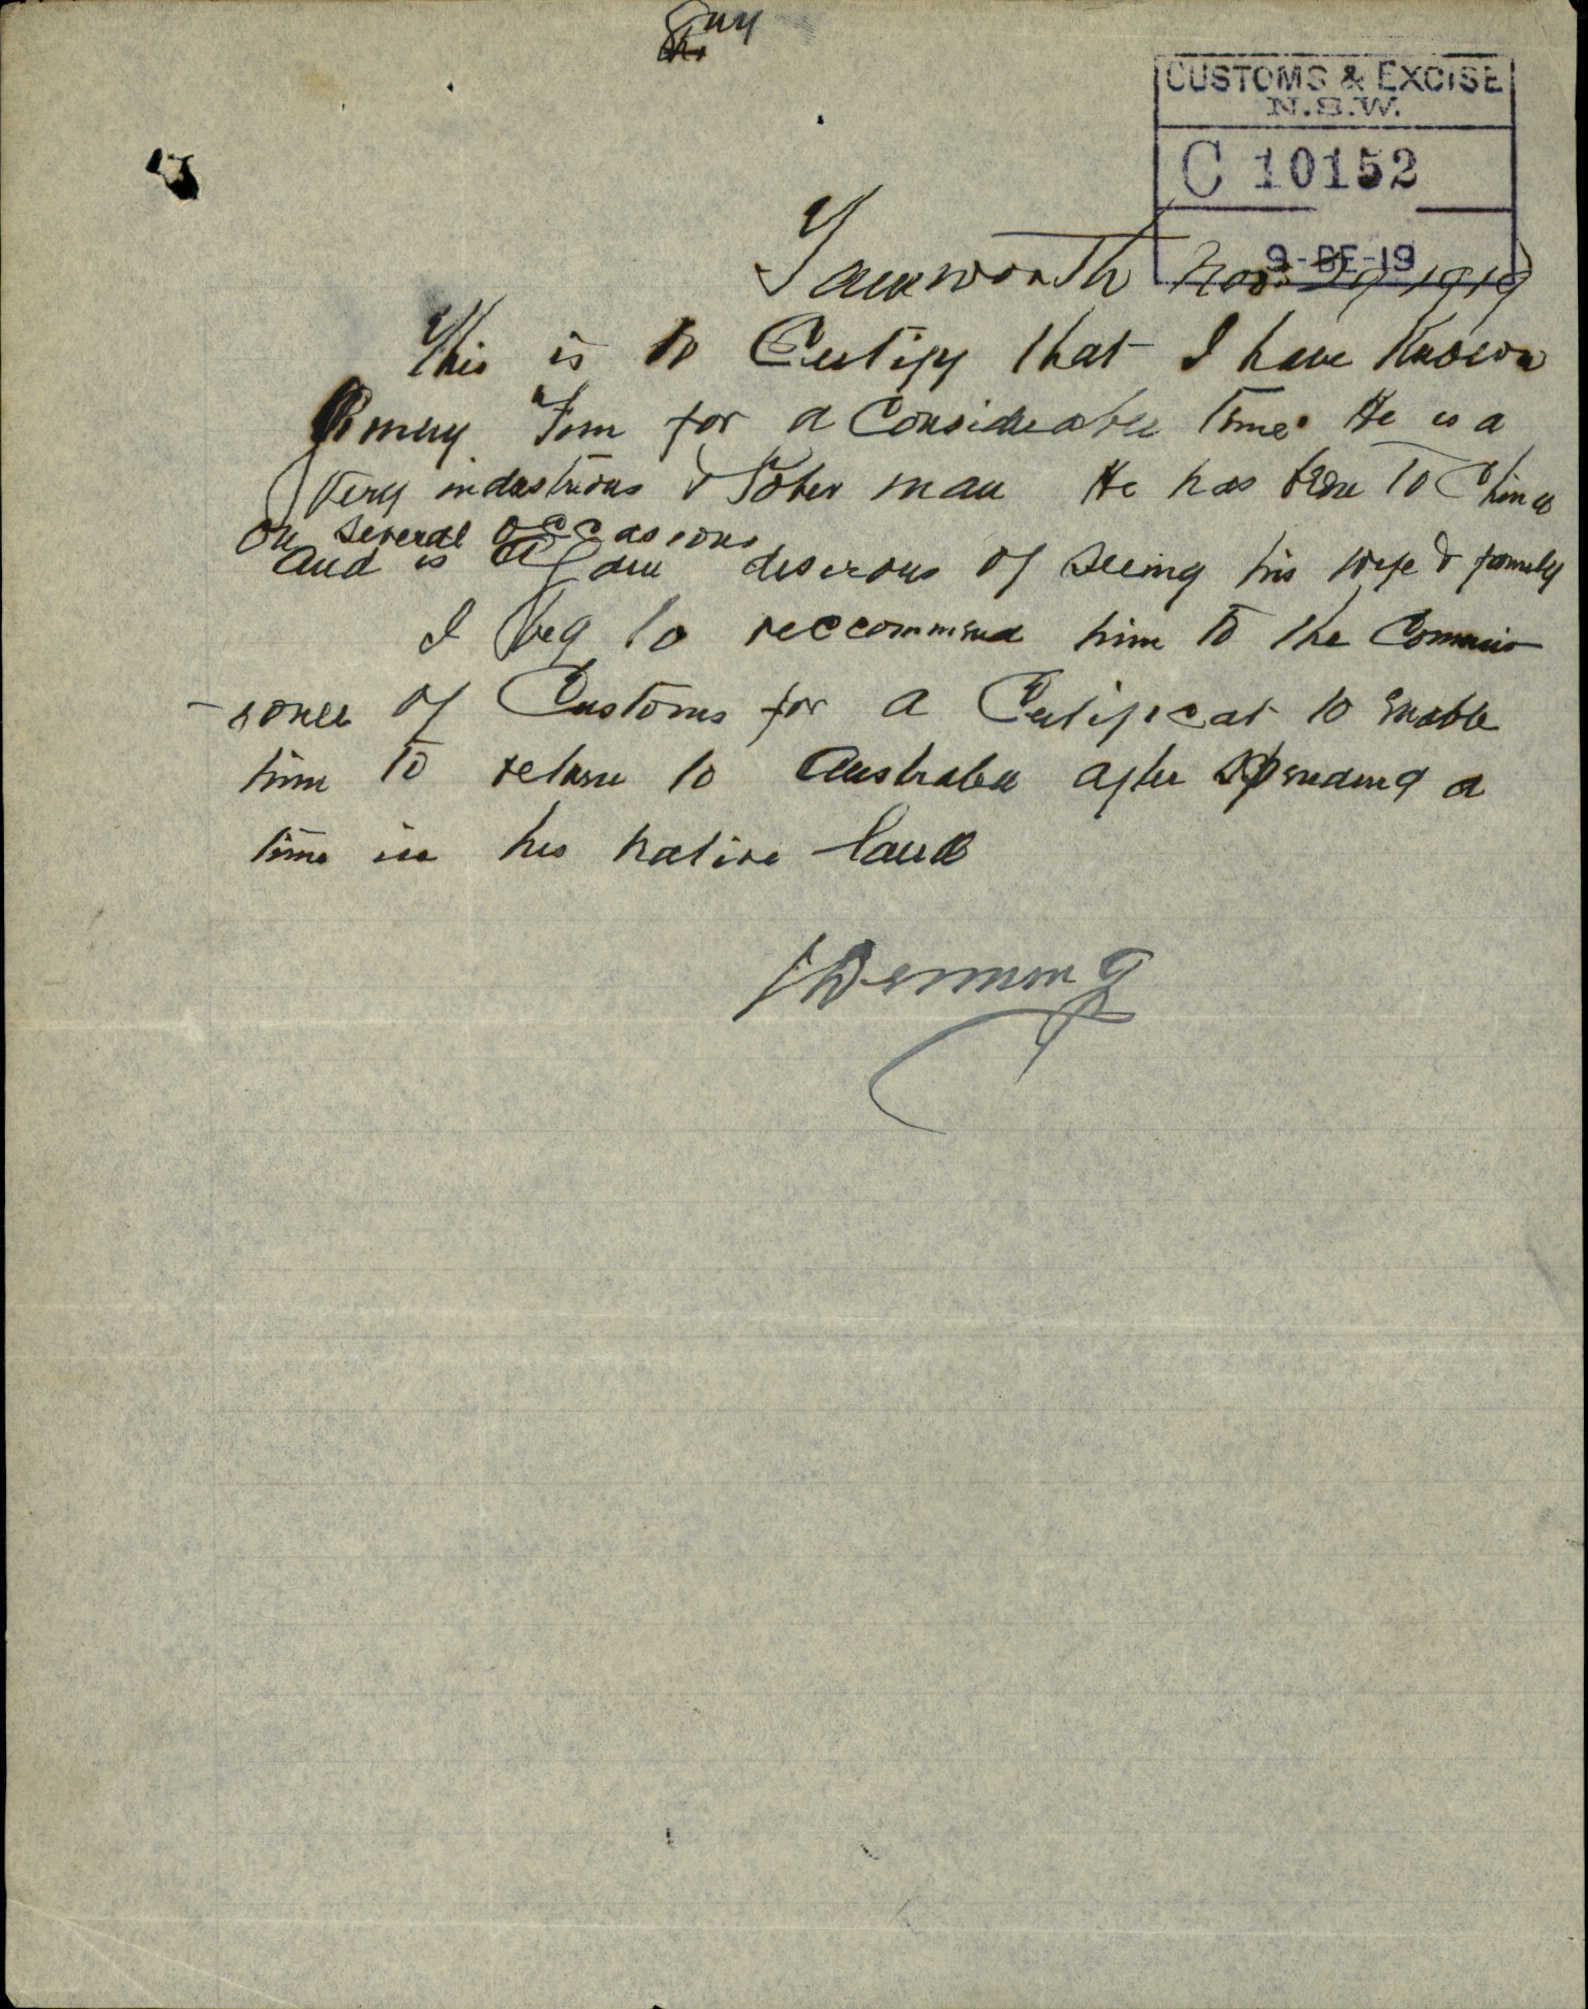 CUSTOMS & EXCISE
N.S.W.
C 10152
9-DE-19
Tamworth Nov. 29 1919
This is to Certify that I have Known
Tom for a Considerable Time. He is a
Very industrious & Sober man He has been To China
on several occasions
and is again desirous of seeing his wife & family
I beg to reccommend him to the Commis
-soner of Customs for a Certificat to Enable
him to return to Australia after spending a
time in his native land